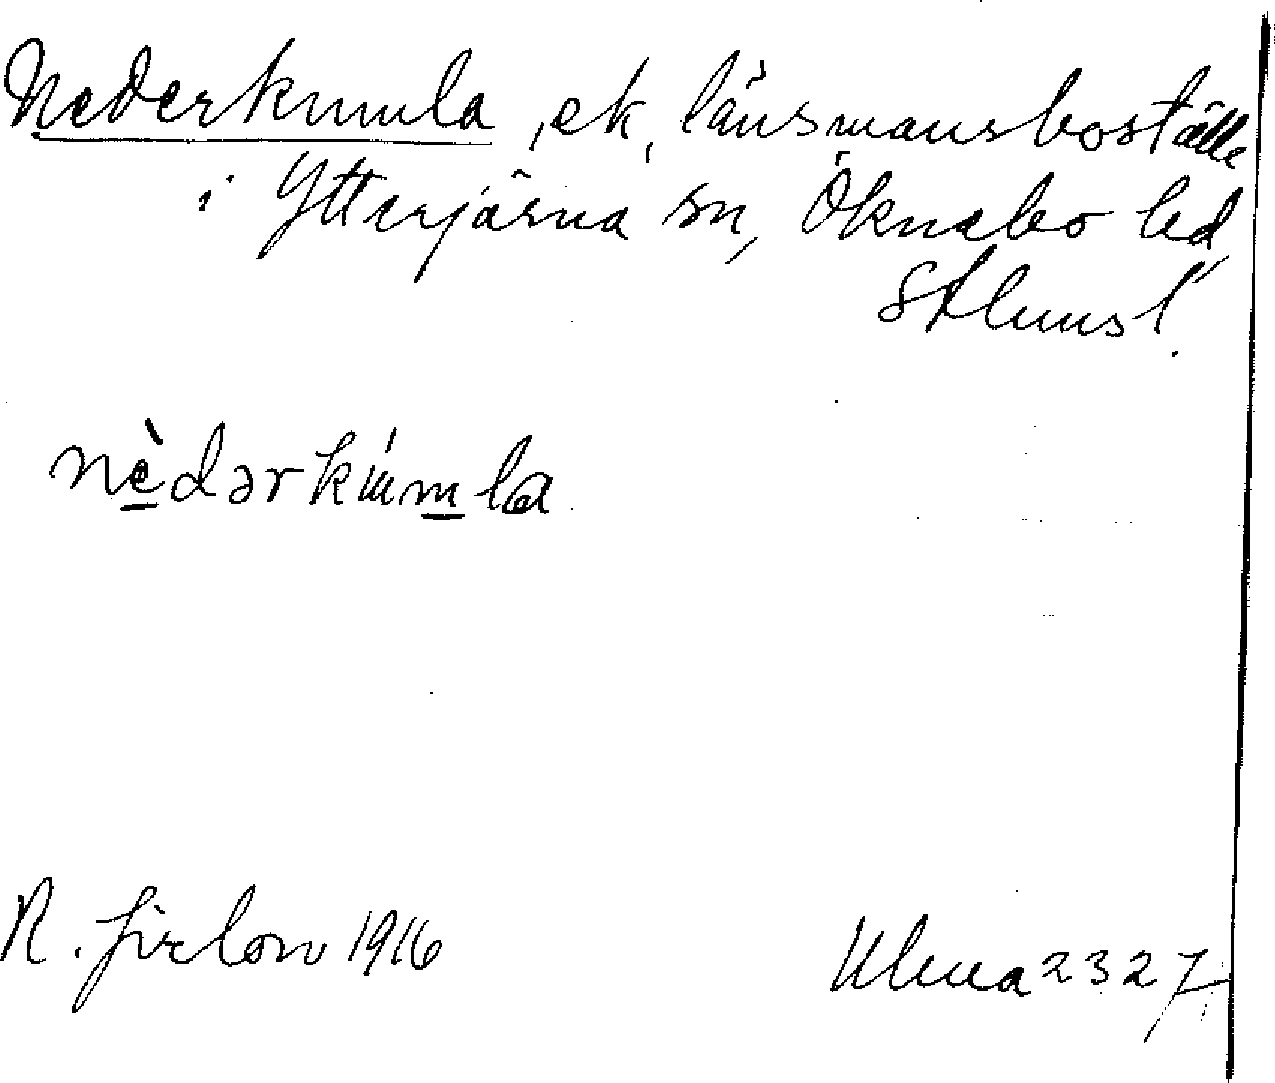 Nederkumla, ek, länsmansboställe
i Ytterjärna sn, Öknebo hd,
Sthlms l.
nèdərkúmla
R. 1916
Ulma 2327